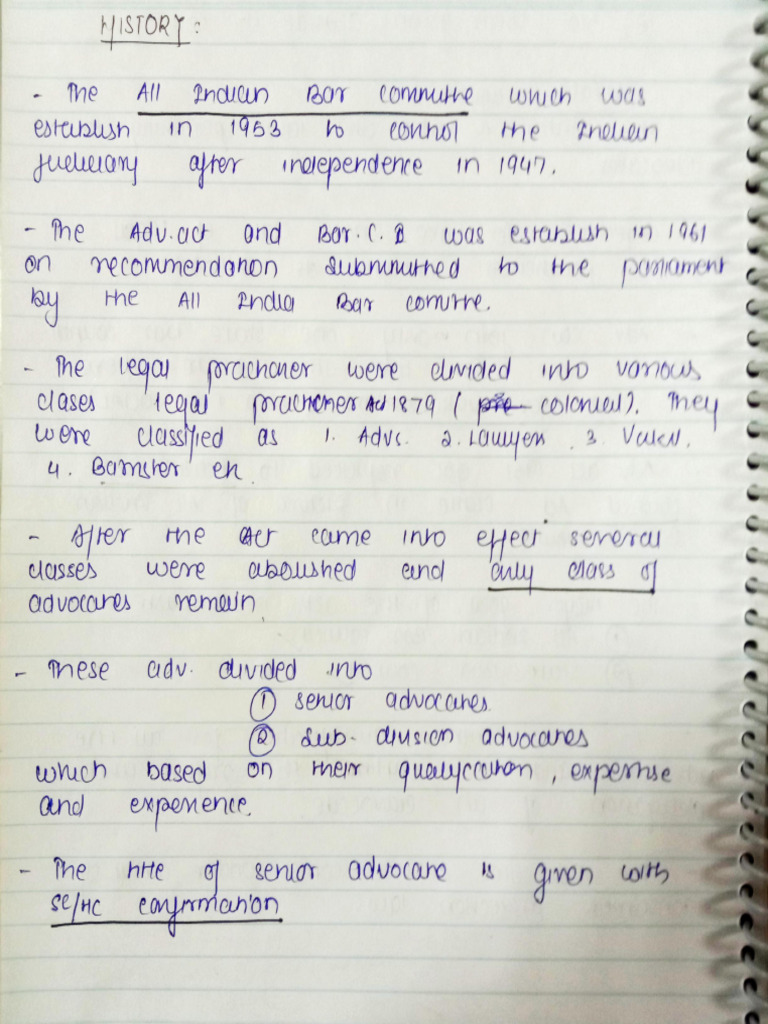 HISTORY:
- The All Indian Bar committe which was
establish in 1953 to control the Indian
judiciary after independence in 1947.
- The Adv. act and Bar. C. I was establish in 1961
on recommendation submmitted to the parliament
by the All India Bar comitte.
- The legal practioner were divided into various
clases legal practioner Act 1879 (pre colonial). They
were classified as 1. Advs. 2. Lawyer. 3. Vakil.
4. Barrister etc.
- After the Act came into effect several
classes were abolished and only class of
advocates remain.
- These adv. divided into
① senior advocates.
② Sub-division advocates
which based on their qualification, expertise
and experience.
- The title of senior advocate is given with
SC/HC confirmation